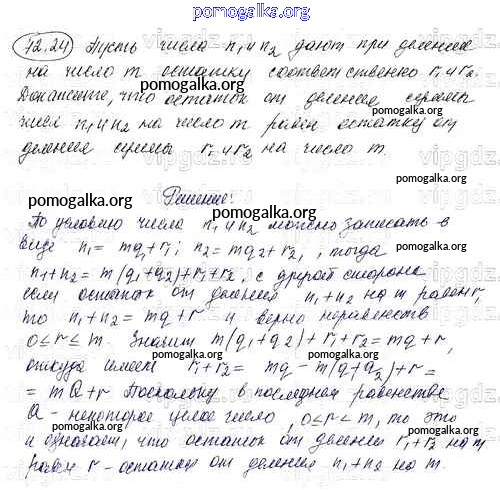 pomogalka.org
72.24 Пусть числа n₁ и n₂ дают при делении
на число m остатки соответственно r₁ и r₂.
Докажите, что остаток от деления суммы
чисел n₁ и n₂ на число m равен остатку от
деления суммы r₁ и r₂ на число m.
pomogalka.org
Решение:
pomogalka.org
По условию числа n₁ и n₂ можно записать в
виде n₁ = mq₁ + r₁; n₂ = mq₂ + r₂, тогда
n₁ + n₂ = m(q₁ + q₂) + r₁ + r₂, с другой стороны
если остаток от деления n₁ + n₂ на m равен r,
то n₁ + n₂ = mq + r и верно неравенств
0 ≤ r ≤ m. Значит m(q₁ + q₂) + r₁ + r₂ = mq + r,
откуда имеем r₁ + r₂ = mq - m(q + q₂) + r =
= mQ + r Поскольку в последнем равенстве
Q - некоторое целое число, 0 ≤ r ≤ m, то это
и означает, что остаток от деления r₁ + r₂ на m
равен r - остатки от деления n₁ + n₂ на m.
pomogalka.org